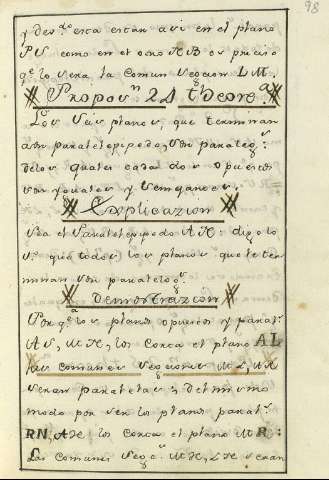 98
y des.. esta estan asi en el plano
PS como en el otro XB es preciso
q.e lo sera la comun seccion LM.
Propos.n 24 theore.a
Los seis planos, que terminan
a un paralelepipedo, son paralog.s
delos quales cada dos opuestos
son yguales y semejantes.
Explicazion
sea el Paralelepipedo AX: digo lo
1.o que todos los planos que le ter
minan son paralelog.s
Demostrazion
Por q.e los planos opuestos y paral.s
los corta el plano AL
sus comunes secciones
seran paralelas; del mismo
modo por ser los planos paral.s
RN, AX los corta el plano MR:
Las comunes secc.s MX, LX seran